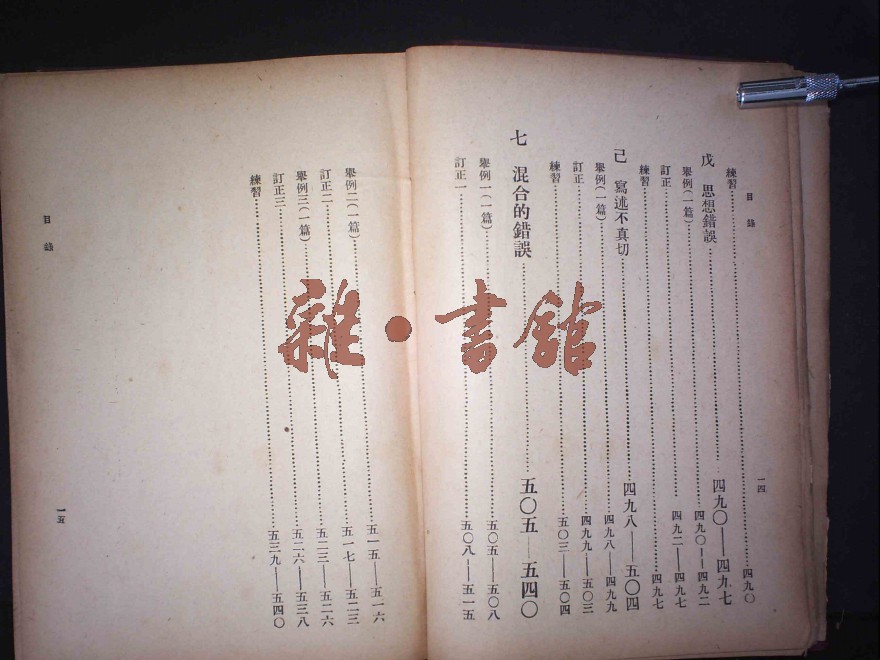 目錄
一四
練習……四九〇
戊 思想錯誤……四九〇——四九七
舉例(一篇)……四九〇——四九二
訂正……四九二——四九七
練習……四九七
己 寫述不真切……四九八——五〇四
舉例(一篇)……四九八——四九九
訂正……四九九——五〇三
練習……五〇三——五〇四
七 混合的錯誤……五〇五——五四〇
舉例一(一篇)……五〇五——五〇八
訂正一……五〇八——五一五
舉例二(一篇)……五一五——五一六
訂正二……五一七——五二三
舉例三(一篇)……五二三——五二六
訂正三……五二六——五三八
練習……五三九——五四〇
目錄
一五
雜·書館